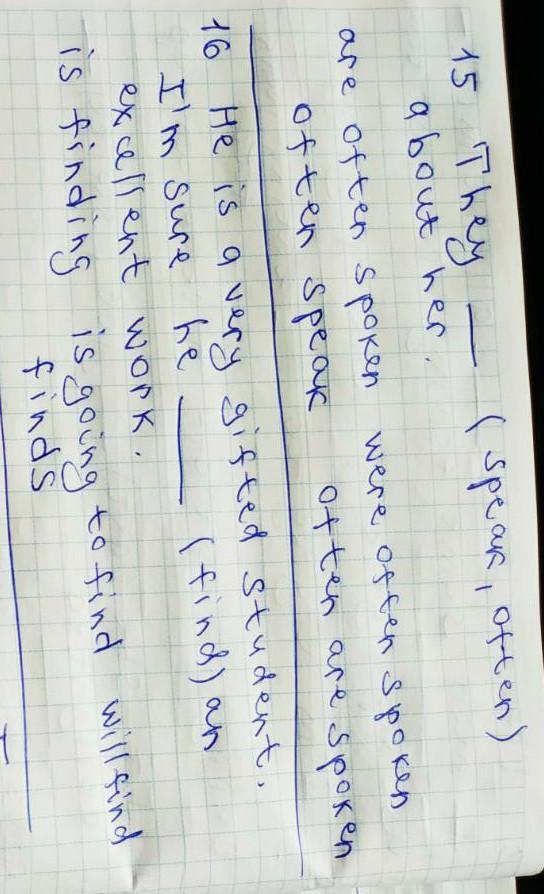 15 They ___ (speak, often)
about her.
are often spoken were often spoken
often speak often are spoken
16 He is a very gifted student.
I'm sure he ___ (find) an
excellent work.
is finding is going to find will find
finds